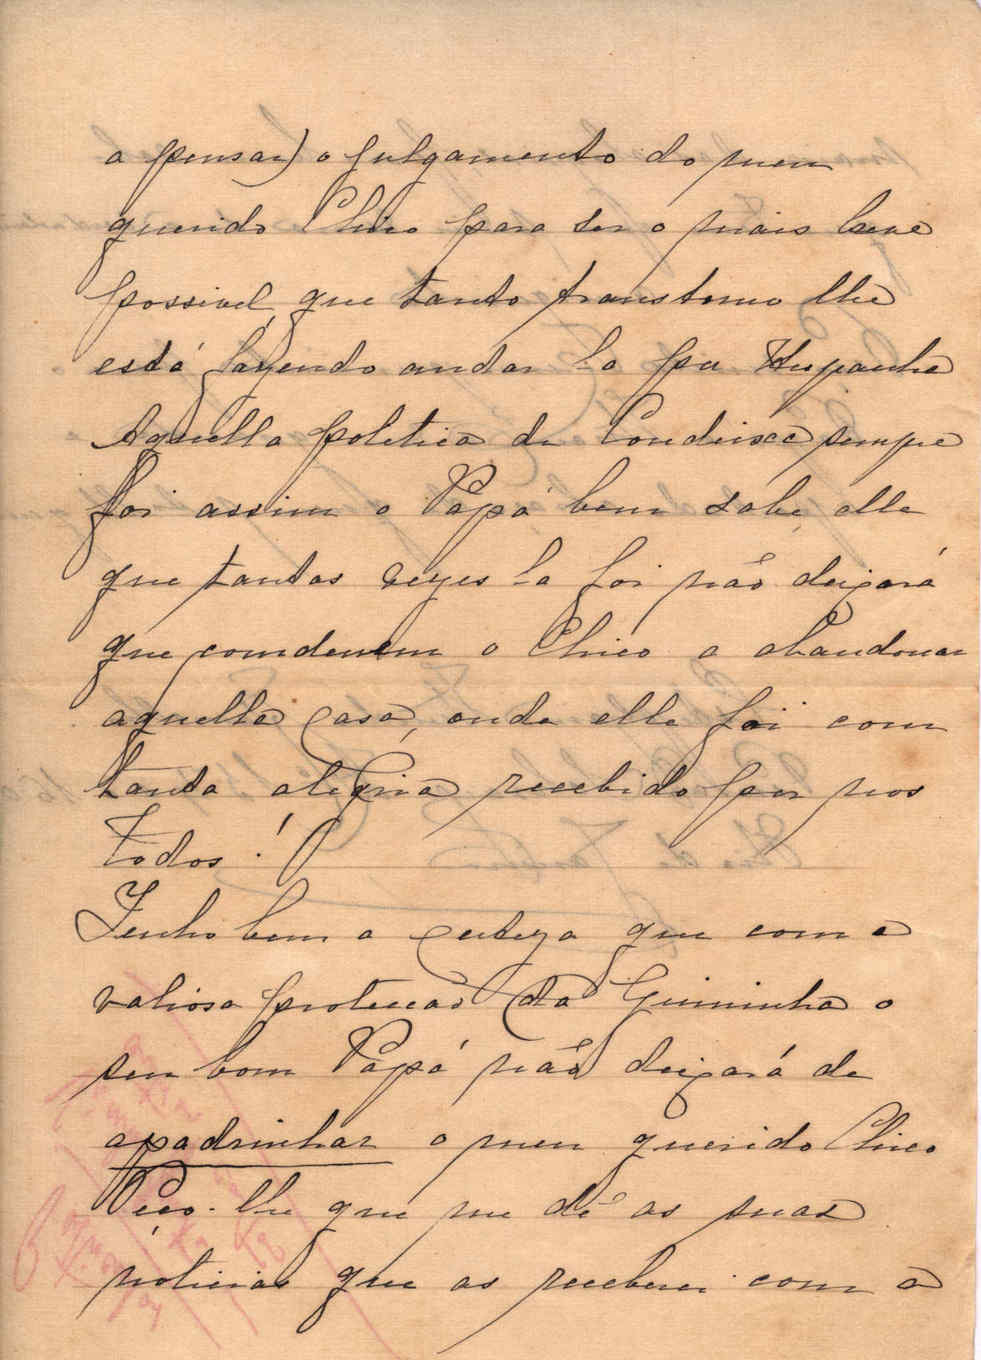 a pensar) o julgamento do meu
querido Chico para ser o mais leve
possivel, que tanto transtorno lhe
está fazendo andar la por Hespanha
Aquella politica de Condeixa sempre
foi assim o Papá bem sabe, elle
que tantas vezes la foi não deixará
que comdenem o Chico a abandonar
aquella casa, onde elle foi com
tanta alegria recebido por nos
todos!
Tenho bem a certeza que com a
valiosa protecção da Guiminha o
seu bom Papá não deixará de
apadrinhar o meu querido Chico
Peço-lhe que me dê as suas
noticias que as receberei com a